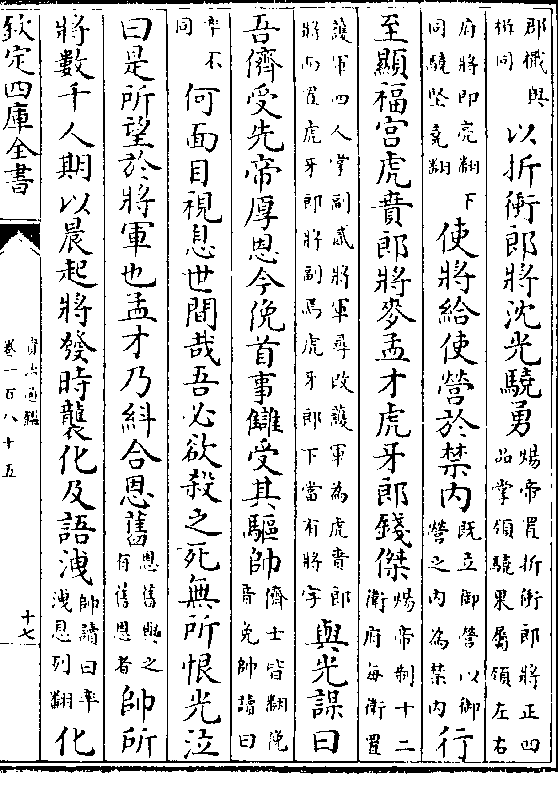 郡檝與
楫同
以折衝郎將沈光驍勇
煬帝置折衝郎將正四
品掌領驍果屬領左右
府將即亮翻
同驍堅堯翻下
使將給使營於禁内
既立御營以御
營之内為禁内
行
至顯福宫虎賁郎將麥孟才虎牙郎錢傑
煬帝制十二
衛府每衛置
護軍四人掌副貳將軍尋改護軍為虎賁郎
將而置虎牙郎將副焉虎牙郎下當有將字
與光謀曰
吾儕受先帝厚恩今俛首事讎受其驅帥
儕士皆翻俛
音免帥讀曰
率下
同
何面目視息世間哉吾必欲殺之死無所恨光泣
曰是所望於將軍也孟才乃糾合恩舊
恩舊與之
有舊恩者
帥所
將數千人期以晨起將發時襲化及語洩
帥讀曰率
洩息列翻
化
欽定四庫全書
資治通鑑
卷一百八十五
十七